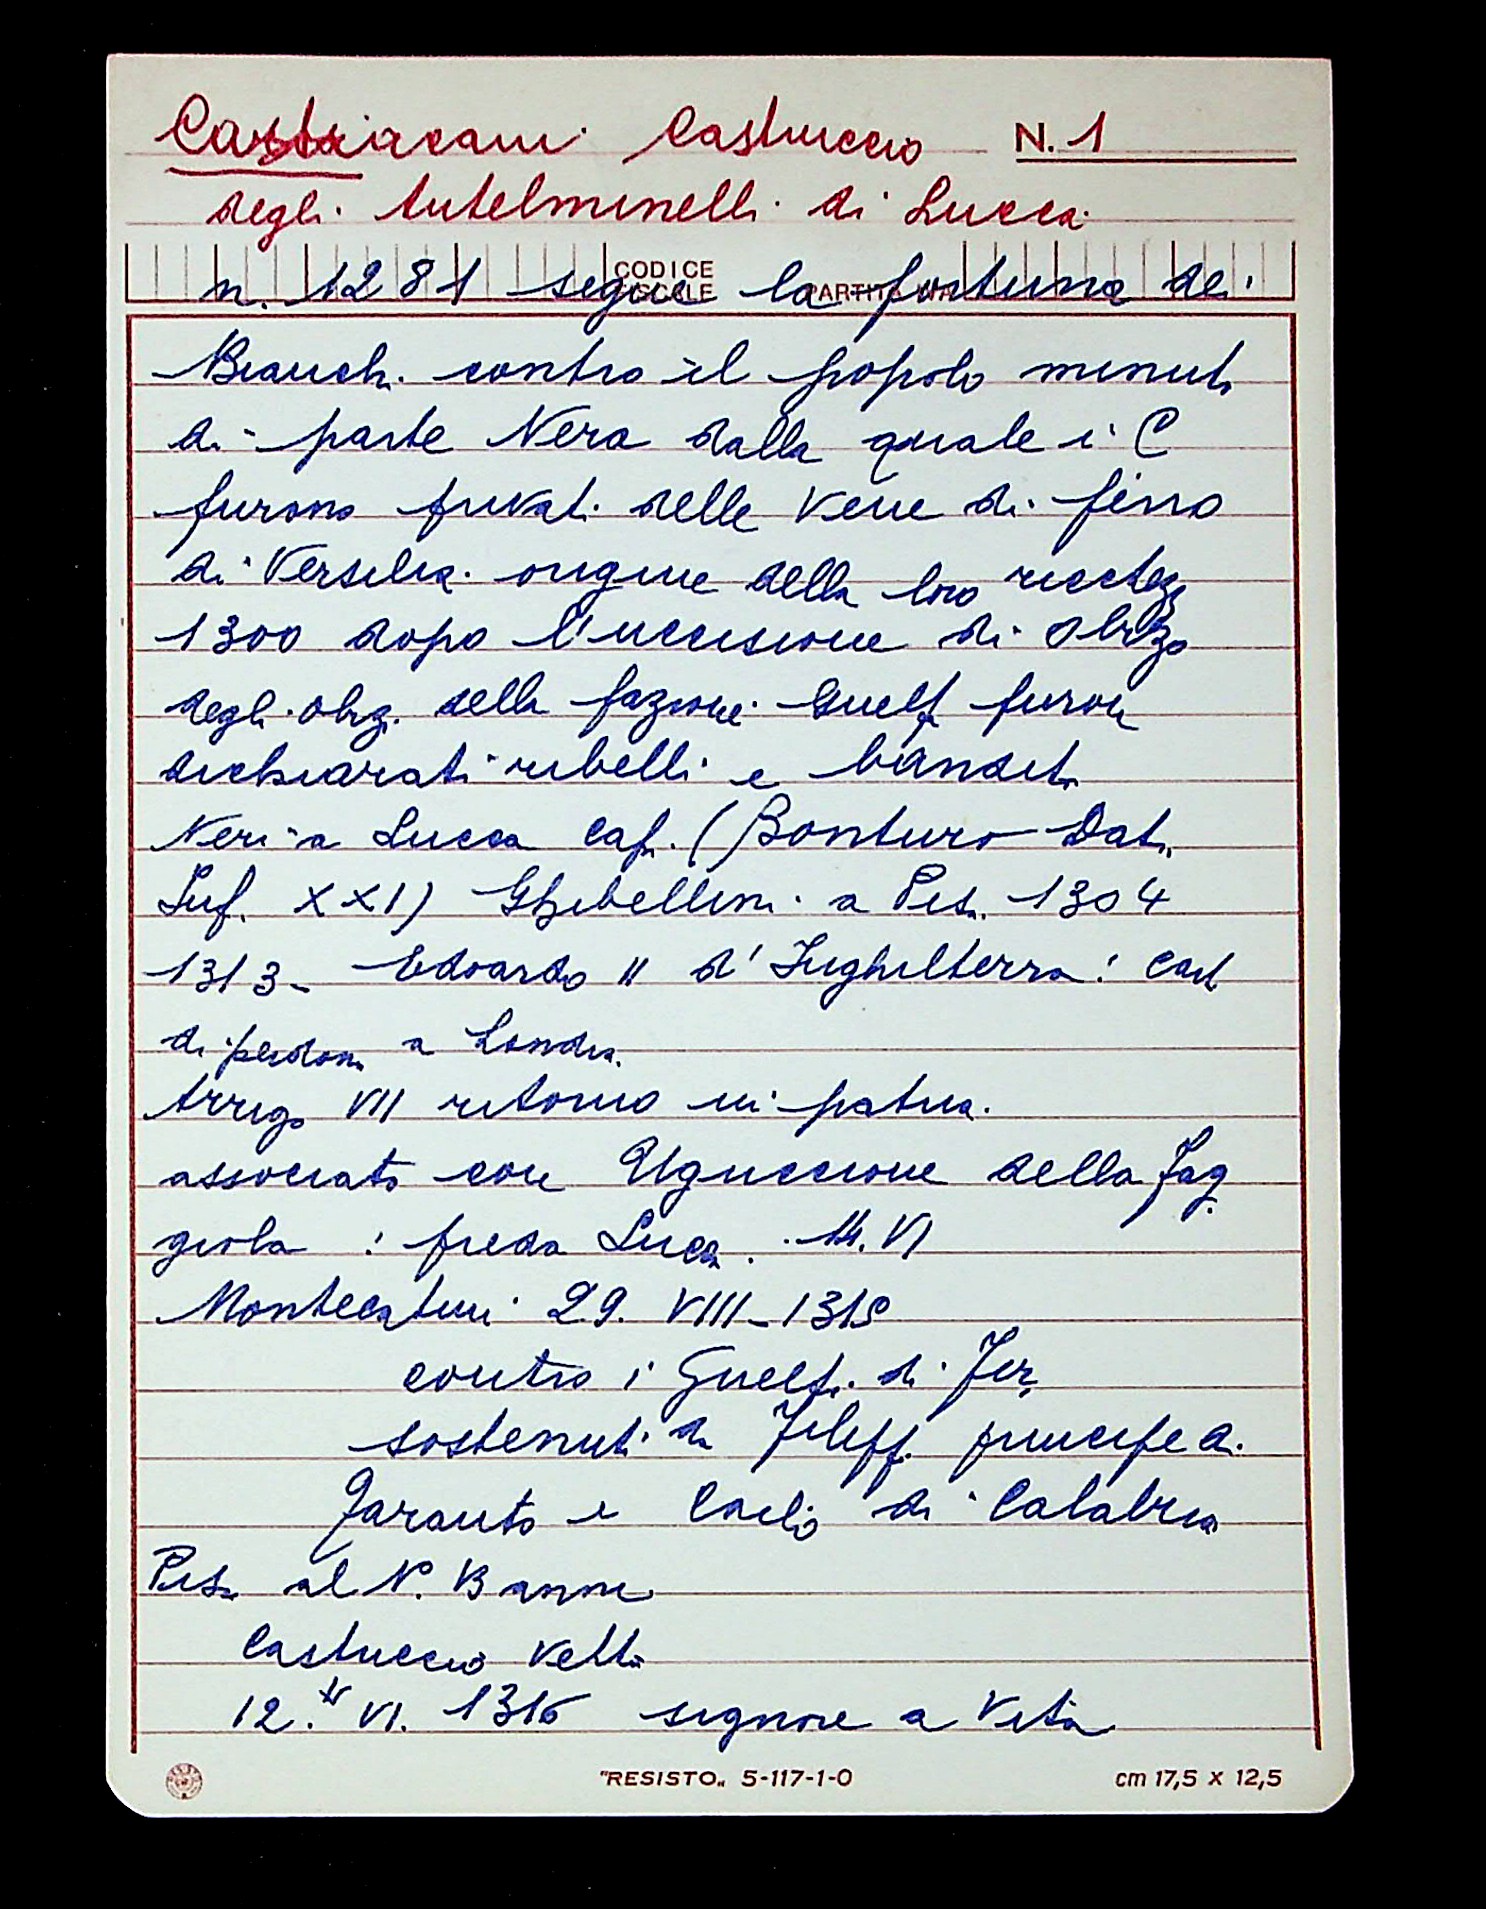 Castracani Castruccio N. 1
degli Antelminelli di Lucca
CODICE
n. 1281 segue la fortuna dei
Bianchi contro il popolo minuto
di parte Nera dalla quale i C
furono privati delle vene di ferro
di Versilia origine della loro ricchezz
1300 dopo l'uccisione di Obizo
degli Obiz. della fazione Guelf furon
dichiarati ribelli e banditi
Neri a Lucca cap. (Bonturo Dati
Inf. XXI) Ghibellini a Pisa 1304
1313- Edoardo II d'Inghilterra: cart
di perdon a Londra.
Arrigo VII ritorno in patria.
associato con Uguccione della Fag
giola : preda Lucca. 14. VI
Montecatini 29. VIII-1315
contro i Guelfi di Fir
sostenuti da Filipp. principe di
Taranto e Carlo di Calabria
Pisa al N.
Castruccio
12. VI. 1316 signore a Vita
"RESISTO" 5-117-1-0 cm 17,5 x 12,5